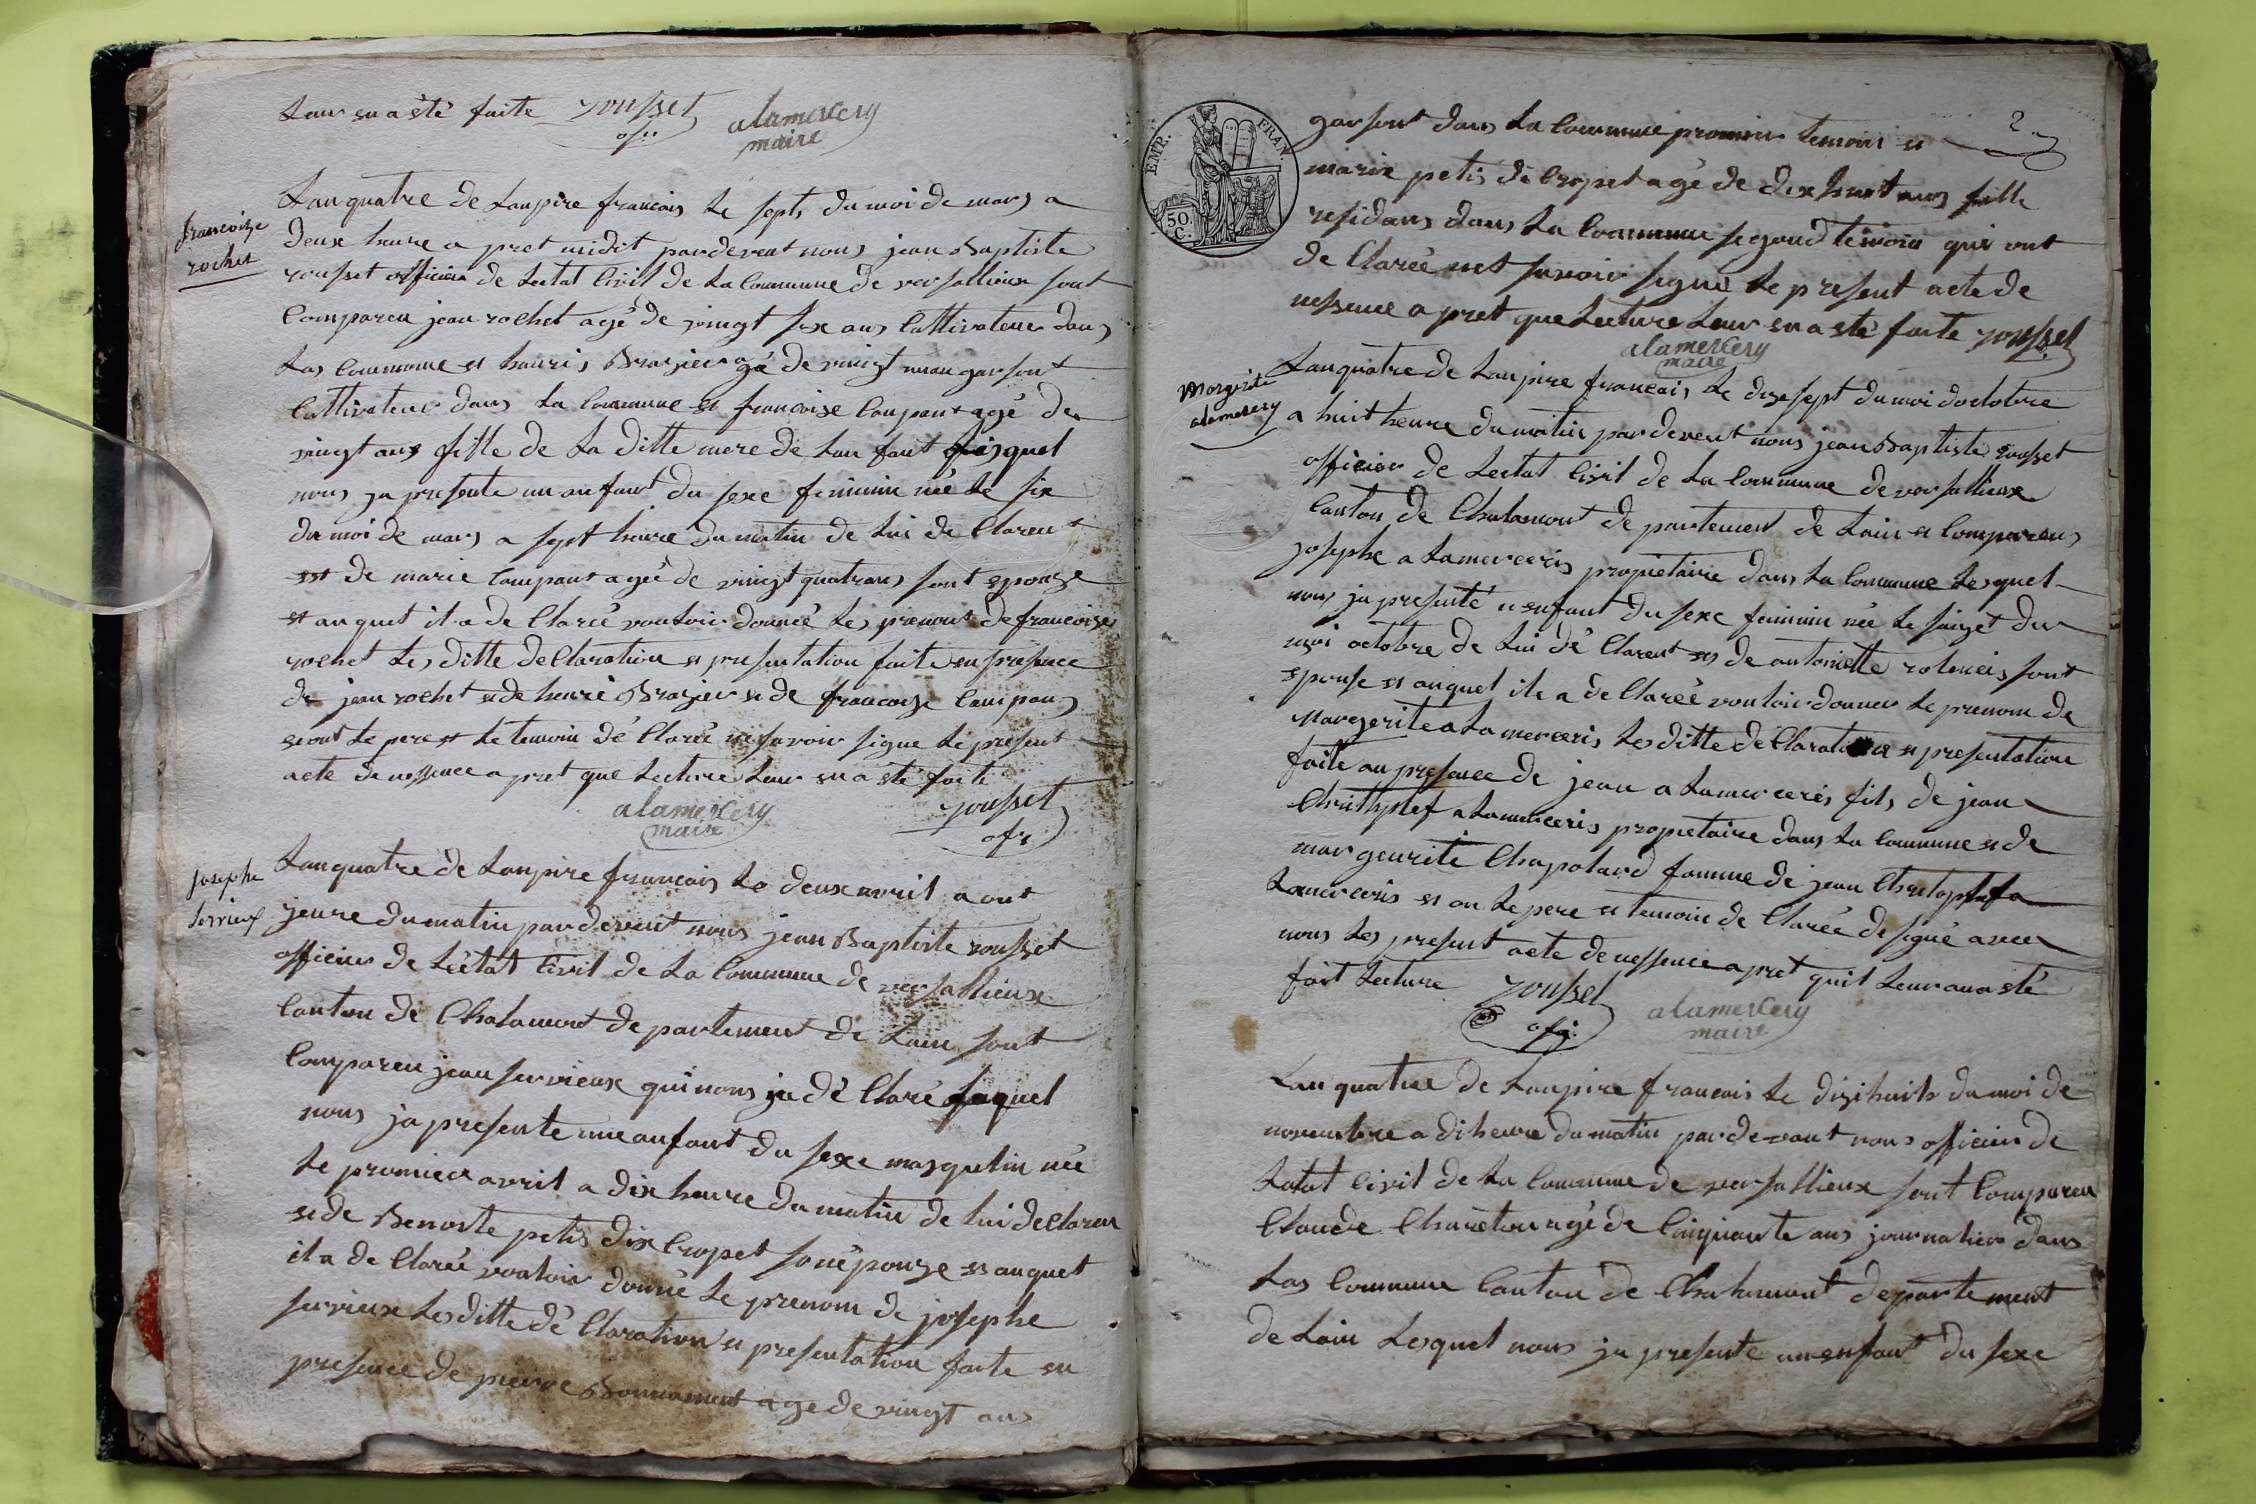 Leur en a été faite rousset alamercery
ofi. maire
francoize
rochet
Lan quatre de Lanpire francois Le sept du moi de mars a
deux heure a pret midit pardevent nous jean Baptiste
rousset officier de Lectat Civil de La Commune de versallieux sont
Compareu jean rochet agé de vingt six ans Cultivateur dans
Las Commune et henris Brazier agé de vingt un an garsont
Cultivateur dans La Commune et francoise Coupant agé de
vingt ans fille de La ditte mere de Lan fant
nous ja presente un anfant du sexe feminin née Le six
du moi de mars a sept heure du matin de Lui de Clarent
est de marie Compant agée de vingt quatrans sont epouze
et auquet il a de Claré vouloir donnée Les prenont de francoize
rochet Les ditte de Claration et presentation faite en presence
de jean rochet et de henri Brazier et de francoize Coupans
seont Le pere et Le temoin dé Claré ne savoir signe Le present
acte de nessence a pret que Lecture Leur en a été faite
alamercery rousset
maire ofi
josephe
servieux
Lan quatre de Lanpire francois Le deux avril a ont
jeure du matin pardevent nous jean Baptiste rousset
officier de Léétat Civil de La Commune de versallieux
Canton de Chalamont departement de Lain sont
Compareu jean servieux qui nous ja dé Claré
nous ja presente une anfant du sexe masqulin née
Le promier avril a dix heure du matin de Lui de Claren
et de Benoite petis dix Cropet son épouze et auquet
il a de Claré vouloir donné Le prenom de josephe
servieux Les ditte dé Claration et presentation faite en
presence de pierre Bonnament age de vingt ans
2
EMP. FRAN.
50.
C.
garsont dans La Commune promier temoin et
marie petis di Cropet agé de dix huit ans fille
residans dans La Commune segond temoin qui ont
de Clarée net savoir signé Le present acte de
nessence a pret que Lecture Leur en a été faite rousset
alamercery
maire
Morgerite
alamercery
Lan quatre de Lanpire francais Le dixsept du moi doctobre
a huit heure du matin pardevent nous jean Baptiste rousset
officier de Lectat Civil de La Commune de versallieux
Canton de Chalamont departement de Lain et Comparaus
josephe a Lamerceris propietaire dans La Commune Lesquel
nous ja presenté u enfant du sexe feminin née Le saizet du
moi octobre de Lui dé Clarent et de antoinette sont
epouse et auquel ils a de Clarée vouloir donner Le prenom de
Margerite a Lamerceris Les ditte de Claration et presentation
faite au presence de jean a Lamerceris fils de jean
Christophef a Lamerceris propietaire dans La Commune et de
margeurite Chapolard famme de jean Christophf a
Lamerceris et on Le pere et temoin de Clarée de signé avec
nous Les present acte de nessence a pret quil Leur ana été
fait Lecture rousset alamercery
ofi. maire
Lan quatre de Lanpire francais Le dizihuits du moi de
novembre a di heure du matin pardevant nous officier de
Latat Civil de La Commune de versallieux sont Compareu
Claude Chareton agé de Cinquante ans journalier dans
Las Commune Canton de Chalamont departement
de Lain Lesquel nous ja presente un enfant du sexe